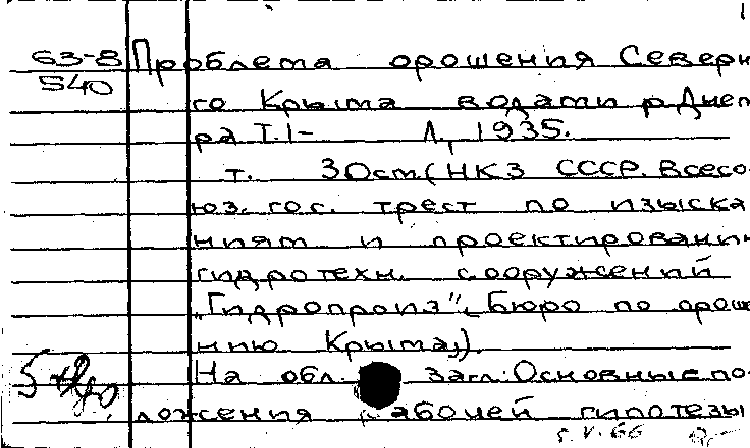 63-8 Проблема орошения Северн
540
го Крыма водами р. Днеп
ра Т.1- Л, 1935.
т. 30см (НКЗ СССР. Всесо
юз. гос. трест по изыска
ниям и проектировани
гидротехн. сооружений
"Гидропроиз", Бюро по ороше
нию Крыма).
На обл. загл: Основные по
ложения рабочей гипотезы
5.V.66